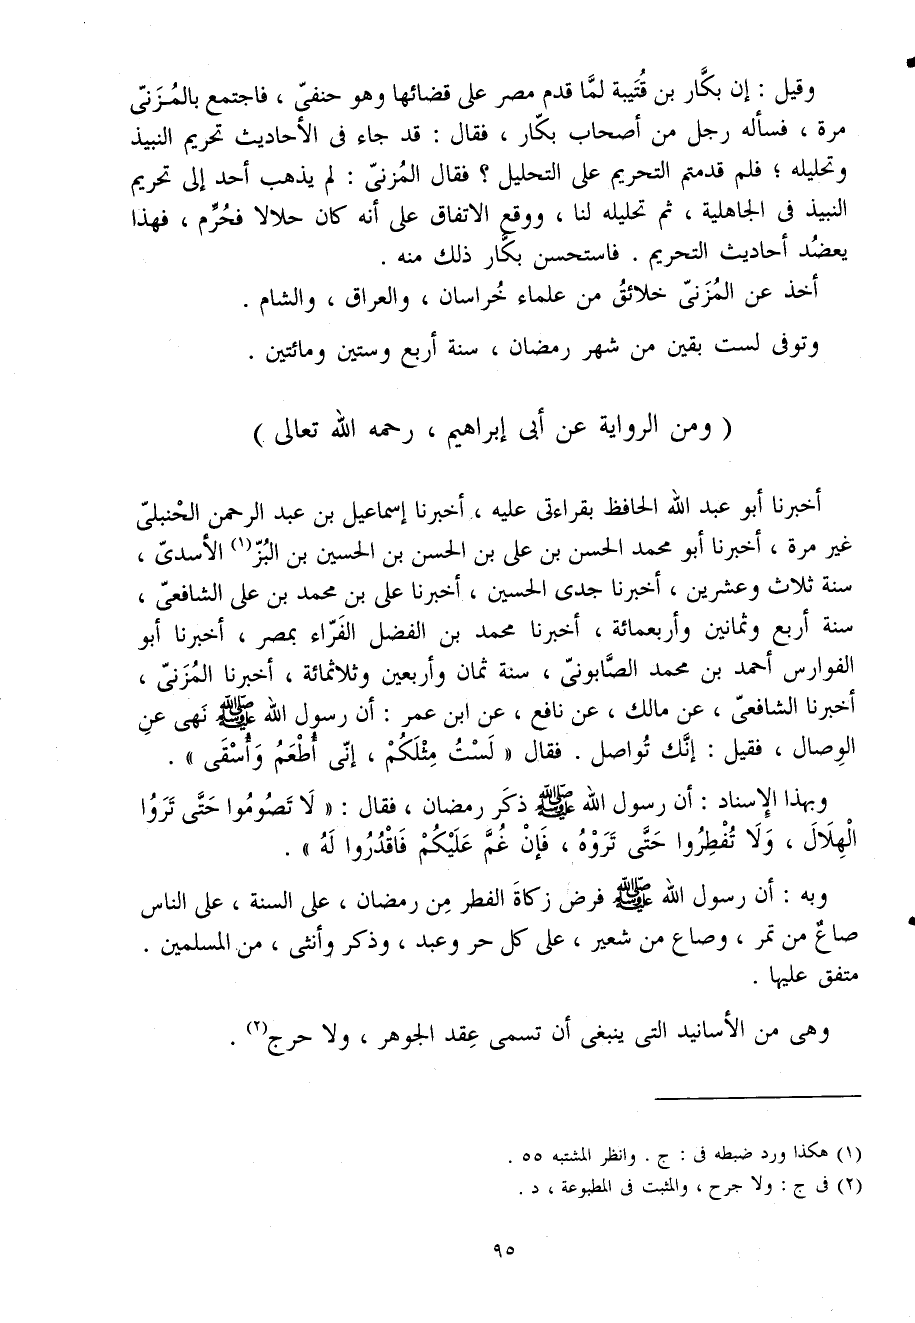 وقيل : إن بكَّار بن قُتَيبة لمَّا قدم مصر على قضائها وهو حنفىّ ، فاجتمع بالمُزَنىّ
مرة ، فسأله رجل من أصحاب بكّار ، فقال : قد جاء فى الأحاديث تحريم النبيذ
وتحليله ؛ فلم قدمتم التحريم على التحليل ؟ فقال المُزنىّ : لم يذهب أحد إلى تحريم
النبيذ فى الجاهلية ، ثم تحليله لنا ، ووقع الاتفاق على أنه كان حلالا فحُرِّم ، فهذا
يعضُد أحاديث التحريم . فاستحسن بكَّار ذلك منه .
أخذ عن المُزَنىّ خلائقُ من علماء خُراسان ، والعراق ، والشام .
وتوفى لست بقين من شهر رمضان ، سنة أربع وستين ومائتين .
( ومن الرواية عن أبى إبراهيم ، رحمه الله تعالى )
أخبرنا أبو عبد الله الحافظ بقراءتى عليه ، أخبرنا إسماعيل بن عبد الرحمن الحْنبلىّ
غير مرة ، أخبرنا أبو محمد الحسن بن على بن الحسن بن الحسين بن البُرّ(١) الأسدىّ ،
سنة ثلاث وعشرين ، أخبرنا جدى الحسين ، أخبرنا على بن محمد بن على الشافعىّ ،
سنة أربع وثمانين وأربعمائة ، أخبرنا محمد بن الفضل الفَرّاء بمصر ، أخبرنا أبو
الفوارس أحمد بن محمد الصَّابونىّ ، سنة ثمان وأربعين وثلاثمائة ، أخبرنا المُزَنىّ ،
أخبرنا الشافعىّ ، عن مالك ، عن نافع ، عن ابن عمر : أن رسول الله ﷺ نَهى عنِ
الوِصال ، فقيل : إنَّك تُواصل . فقال « لَسْتُ مِثْلَكُمْ ، إنّى أُطْعَمُ وَأُسْقَى » .
وبهذا الإِسناد : أن رسول الله ﷺ ذكَر رمضان ، فقال : « لَا تَصُومُوا حَتَّى تَرَوُا
الْهِلَالَ ، وَلَا تُفْطِرُوا حَتَّى تَرَوْهُ ، فَإنْ غُمَّ عَلَيْكُمْ فَاقْدُرُوا لَهُ » .
وبه : أن رسول الله ﷺ فرض زكاةَ الفطر مِن رمضان ، على السنة ، على الناس
صاعٌ من تمر ، وصاع من شعير ، على كل حر وعبد ، وذكر وأنثى ، من المسلمين .
متفق عليها .
وهى من الأسانيد التى ينبغى أن تسمى عِقد الجوهر ، ولا حرج(٢) .
(١) هكذا ورد ضبطه فى : ج . وانظر المشتبه ٥٥ .
(٢) فى ج : ولا جرح ، والمثبت فى المطبوعة ، د .
٩٥